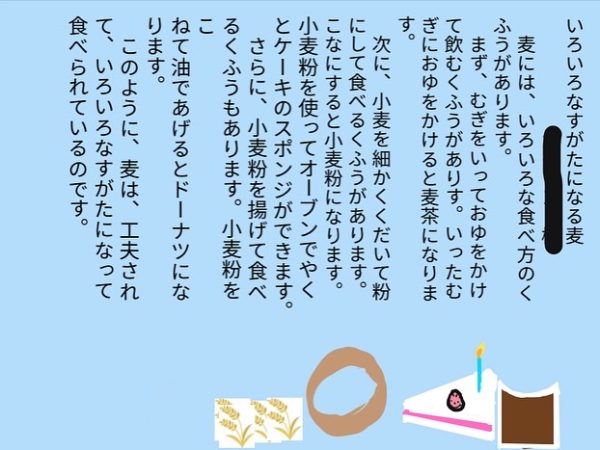 いろいろなすがたになる麦
　麦には、いろいろな食べ方のく
ふうがあります。
　まず、むぎをいっておゆをかけ
て飲むくふうがありす。いったむ
ぎにおゆをかけると麦茶になりま
す。
　次に、小麦を細かくくだいて粉
にして食べるくふうがあります。
こなにすると小麦粉になります。
小麦粉を使ってオーブンでやく
とケーキのスポンジができます。
　さらに、小麦粉を揚げて食べ
るくふうもあります。小麦粉を
こ
ねて油であげるとドーナツにな
ります。
　このように、麦は、工夫され
て、いろいろなすがたになって
食べられているのです。